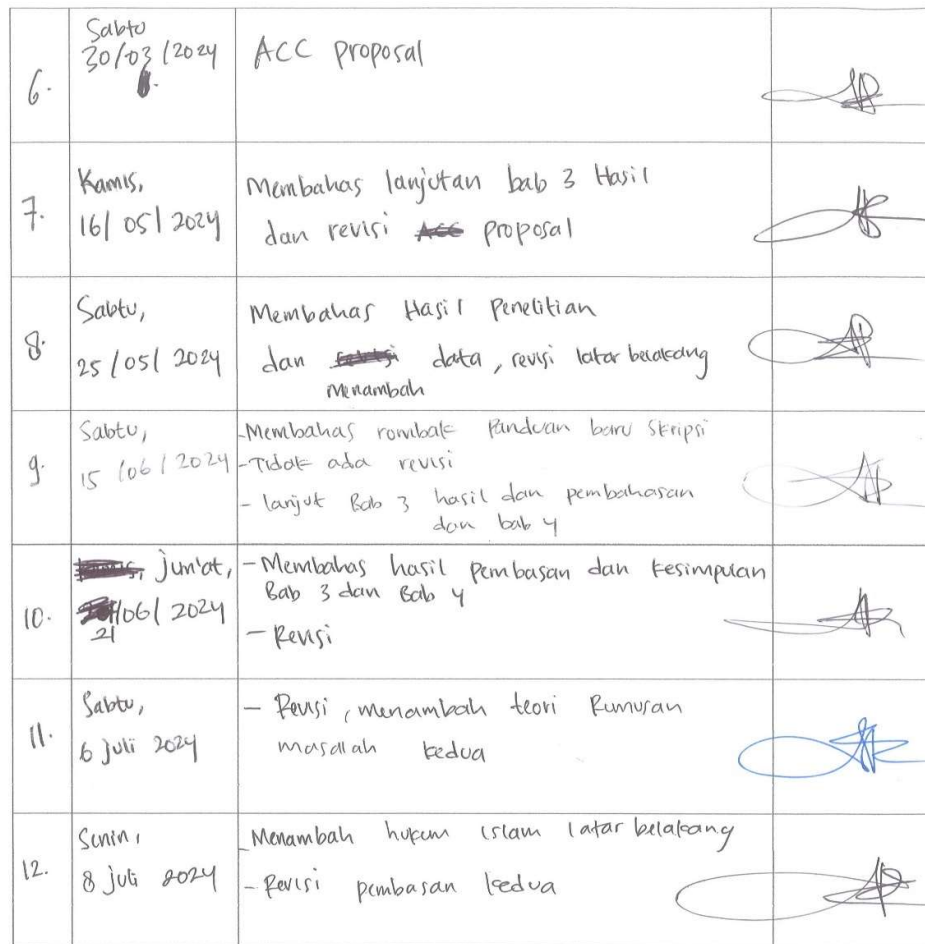 6.
Sabtu
30/03/2024
ACC proposal
7.
Kamis,
16/05/2024
Membahas lanjutan bab 3 Hasil
dan revisi ACC proposal
8.
Sabtu,
25/05/2024
Membahas Hasil Penelitian
dan data, revisi latar belakang
menambah
9.
Sabtu,
15/06/2024
-Membahas rombak Panduan baru Skripsi
-Tidak ada revisi
- lanjut Bab 3 hasil dan pembahasan
dan bab 4
10.
Jum'at,
/06/2024
21
- Membahas hasil pembasan dan kesimpulan
Bab 3 dan Bab 4
- Revisi
11.
Sabtu,
6 juli 2024
- Revisi, menambah teori Rumusan
masalah kedua
12.
Senin,
8 juli 2024
-Menambah hukum islam latar belakang
- Revisi pembasan kedua